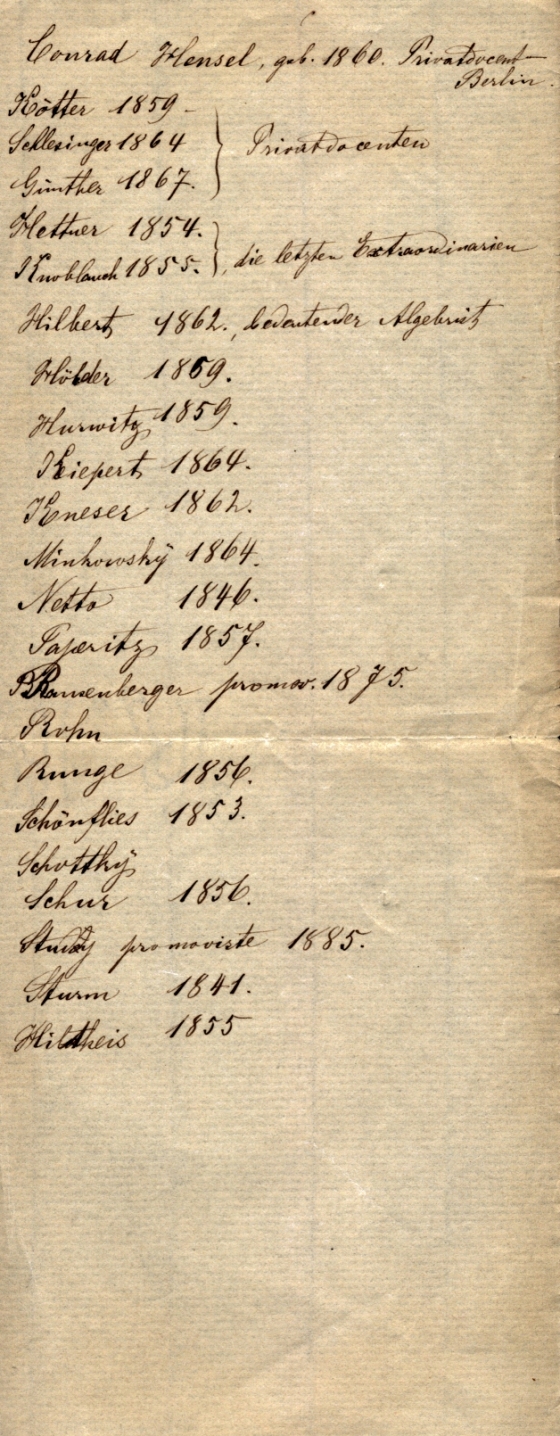 Conrad Hensel, geb. 1860. Privatdocent
Berlin.
Kötter 1859
Schlesinger 1864
Günther 1867. } Privatdocenten
Hettner 1854.
Knoblauch 1855. }, die letzten Extraordinarien
Hilbert 1862., bedeutender Algebrist
Hölder 1859.
Hurwitz 1859.
Kiepert 1864.
Kneser 1862.
Minkowsky 1864.
Netto 1846.
Paperitz 1857.
Rausenberger promov. 1875.
Rohn
Runge 1856.
Schönflies 1853.
Schottky
Schur 1856.
Study promovirte 1885.
Sturm 1841.
Hiltheis 1855